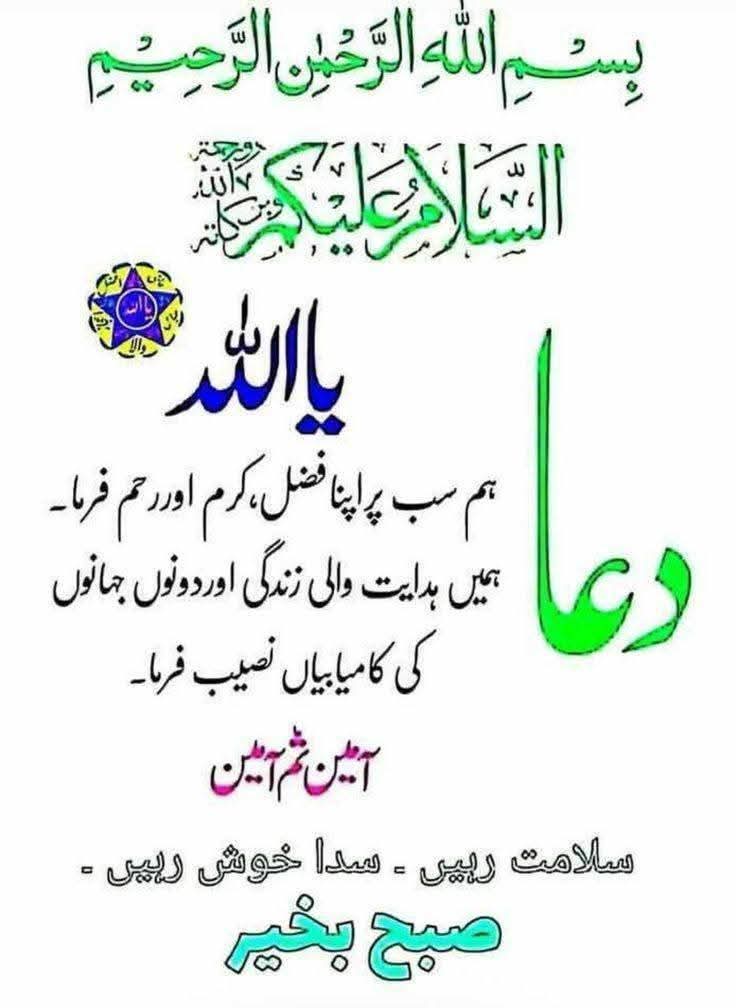 بِسْمِ اللهِ الرَّحْمٰنِ الرَّحِيْمِ
السَّلَامُ عَلَيْكُمْ ورحمۃ اللہ وبرکاتہ
دعا
یا اللہ
یا اللہ
ہم سب پر اپنا فضل، کرم اور رحم فرما۔
ہمیں ہدایت والی زندگی اور دونوں جہانوں
کی کامیابیاں نصیب فرما۔
آمین ثم آمین
سلامت رہیں ۔ سدا خوش رہیں ۔
صبح بخیر